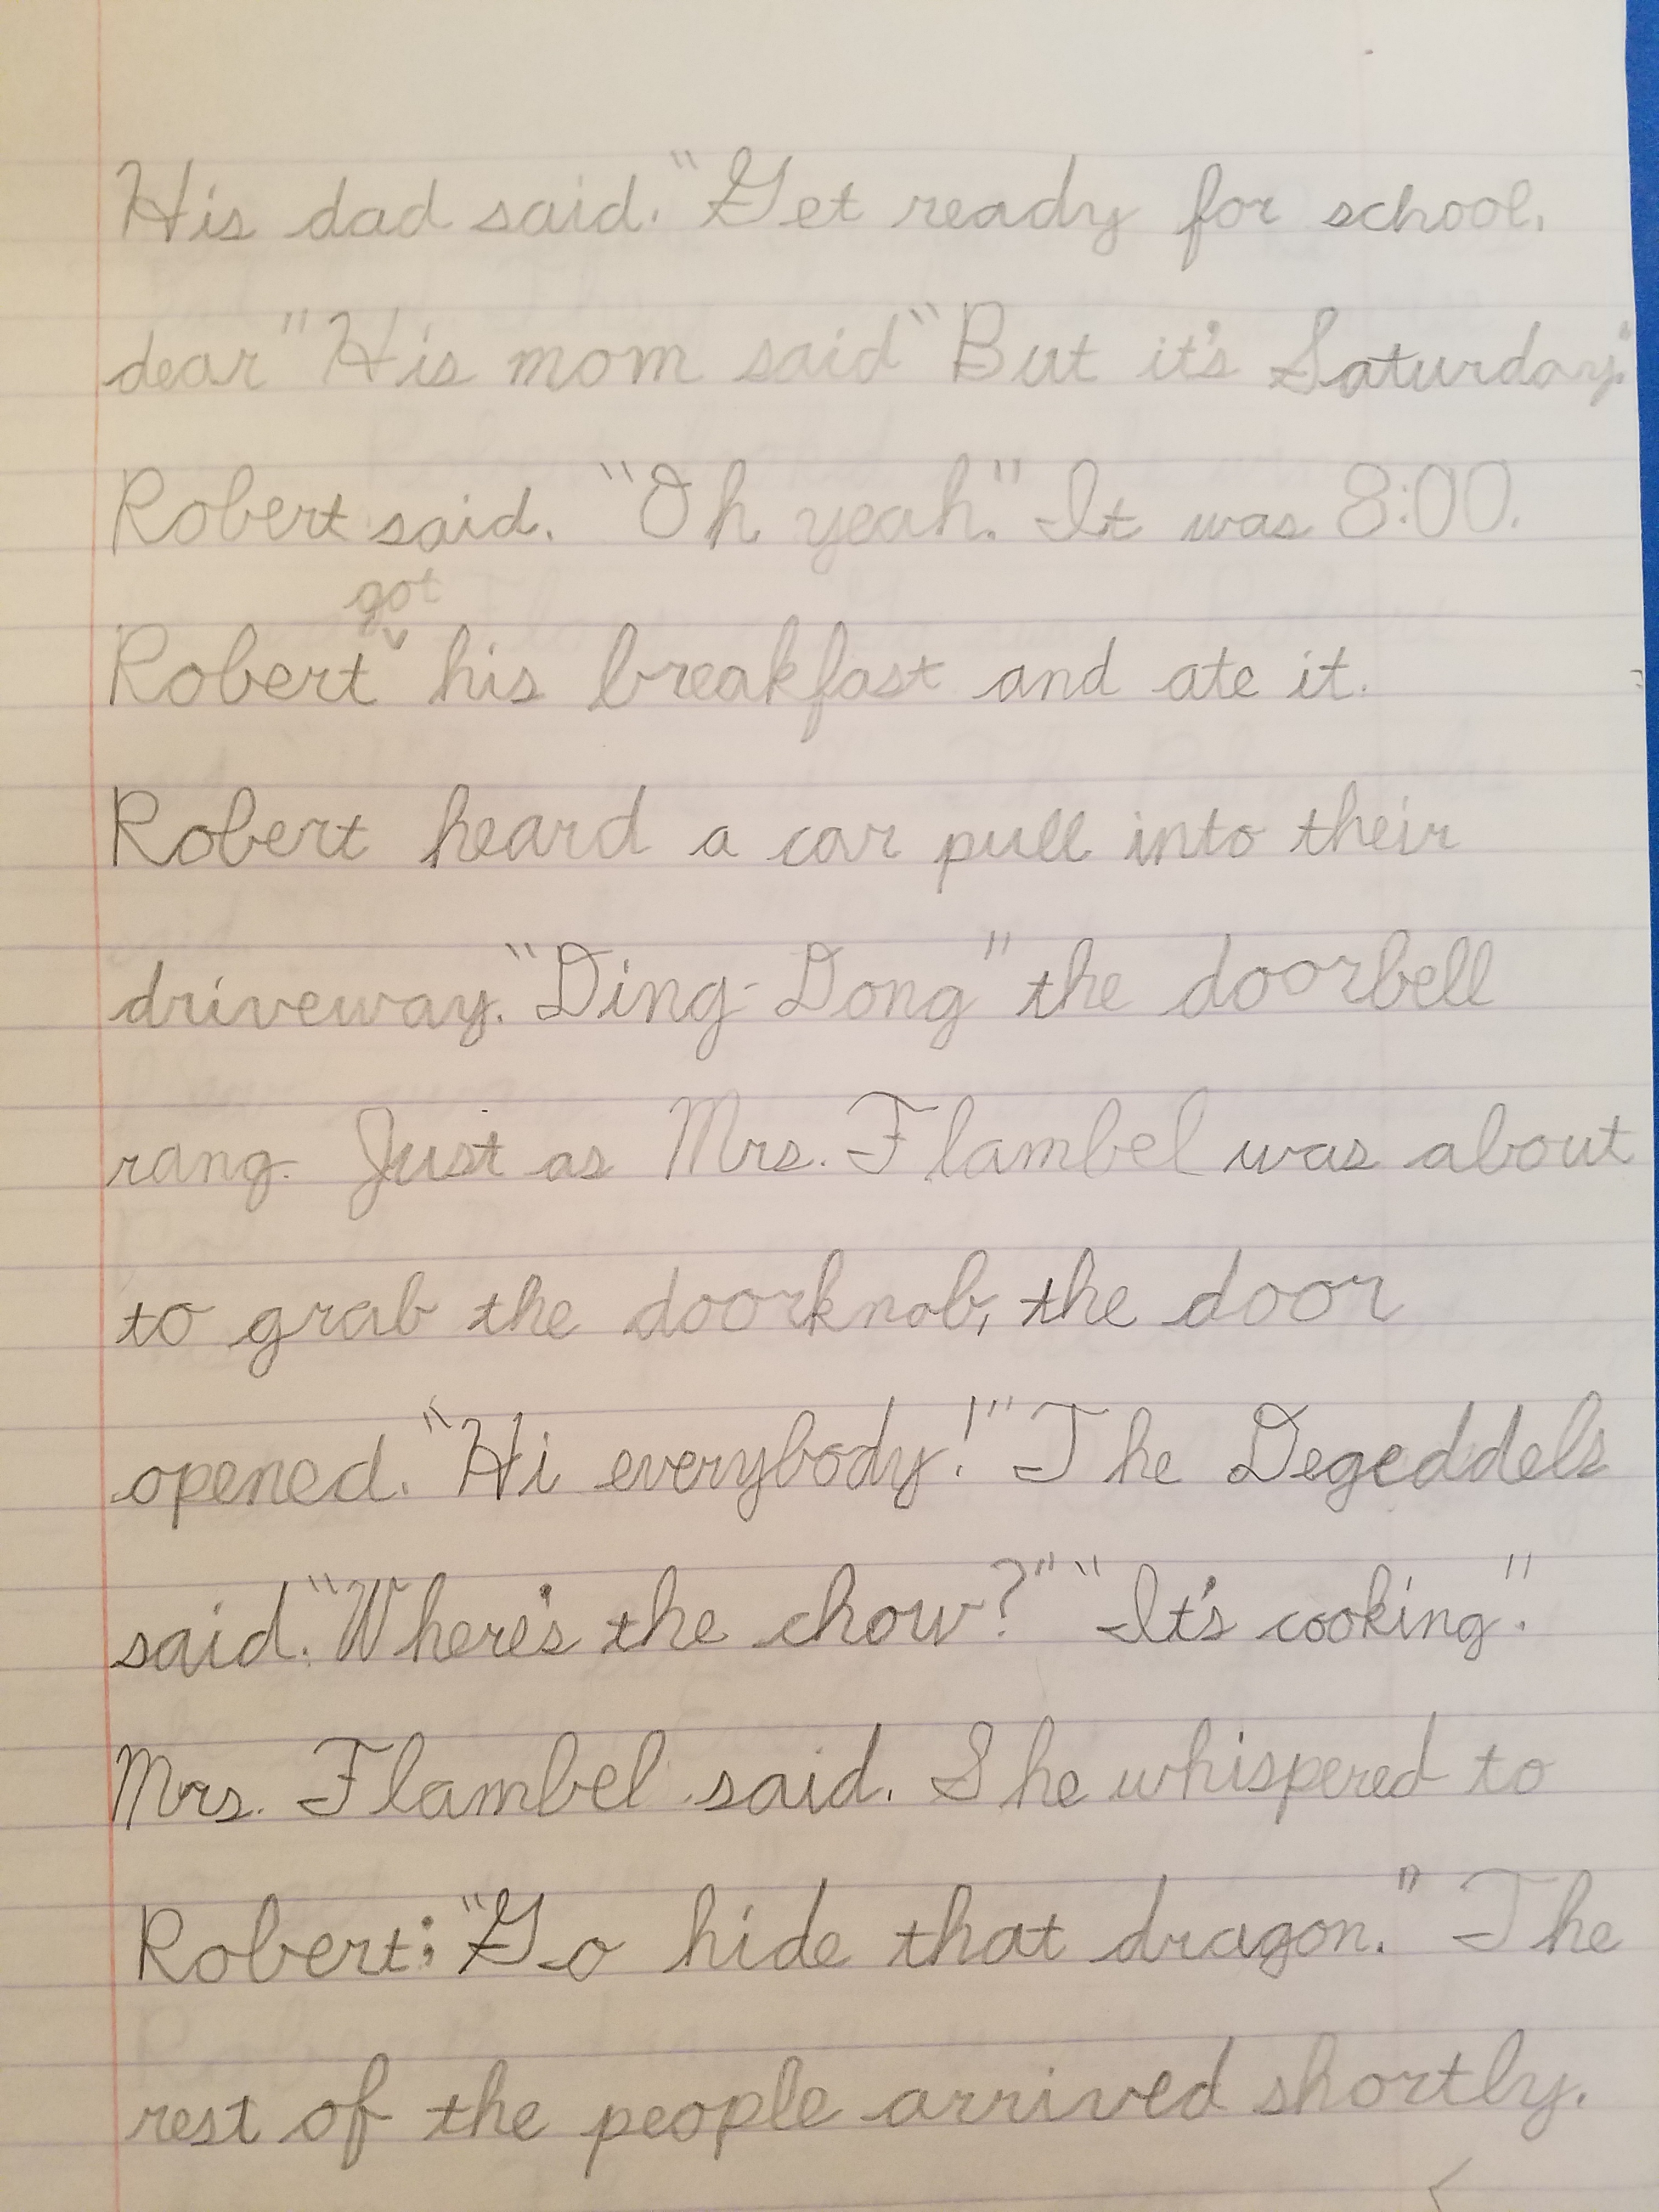 His dad said. "Get ready for school,
dear" His mom said "But it's Saturday."
Robert said. "Oh yeah." It was 8:00.
got
Robert his breakfast and ate it.
Robert heard a car pull into their
driveway. "Ding-Dong" the doorbell
rang. Just as Mrs. Flambel was about
to grab the doorknob, the door
opened. "Hi everybody!" The Degeddels
said. "Where's the chow?" "It's cooking."
Mrs. Flambel said. She whispered to
Robert; "Go hide that dragon." The
rest of the people arrived shortly.